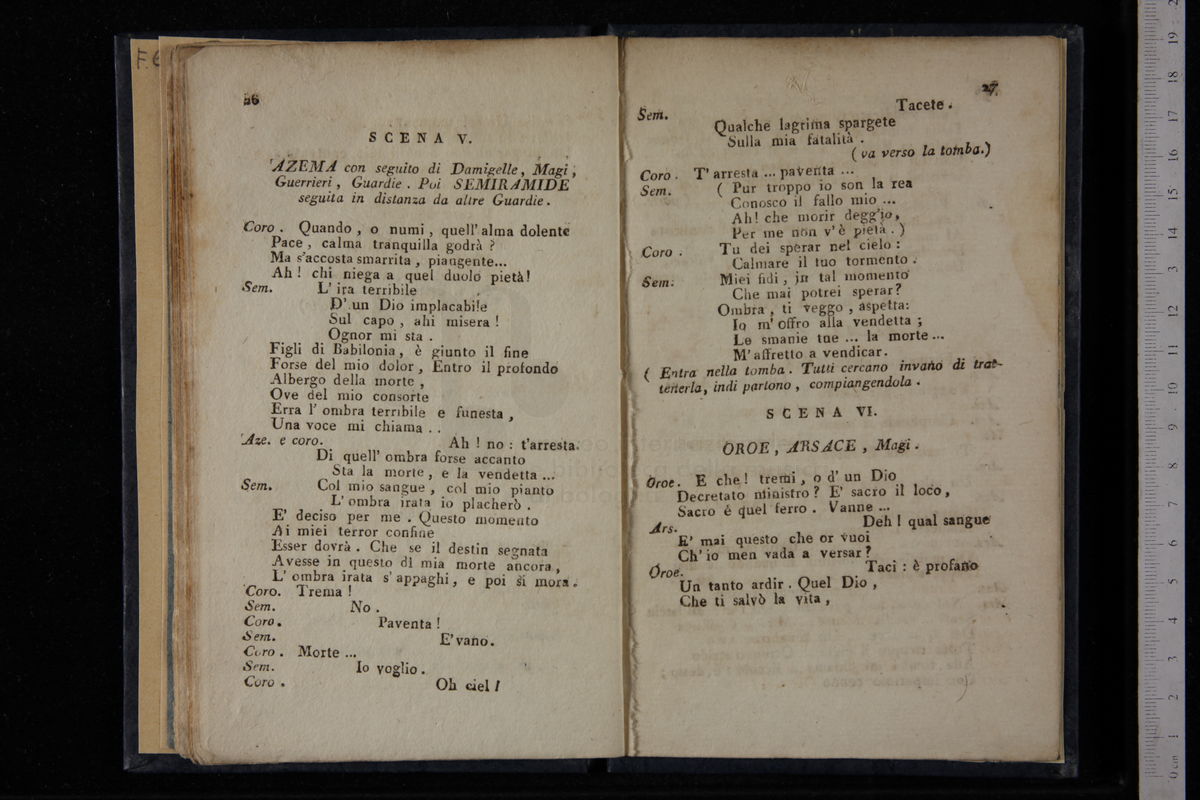 F.
26
SCENA V.
AZEMA con seguito di Damigelle, Magi,
Guerrieri, Guardie. Poi SEMIRAMIDE
seguita in distanza da altre Guardie.
Coro. Quando, o numi, quell' alma dolente
Pace, calma tranquilla godrà?
Ma s'accosta smarrita, piangente...
Ah! chi niega a quel duolo pietà!
Sem. L' ira terribile
D' un Dio implacabile
Sul capo, ahi misera!
Ognor mi sta.
Figli di Babilonia, è giunto il fine
Forse del mio dolor, Entro il profondo
Albergo della morte,
Ove del mio consorte
Erra l' ombra terribile e funesta,
Una voce mi chiama..
Aze. e coro. Ah! no: t'arresta.
Di quell' ombra forse accanto
Sta la morte, e la vendetta...
Sem. Col mio sangue, col mio pianto
L' ombra irata io placherò.
E' deciso per me. Questo momento
Ai miei terror confine
Esser dovrà. Che se il destin segnata
Avesse in questo di mia morte ancora,
L' ombra irata s' appaghi, e poi si mora.
Coro. Trema!
Sem. No.
Coro. Paventa!
Sem. E' vano.
Coro. Morte...
Sem. Io voglio.
Coro. Oh ciel!
27
Sem. Tacete.
Qualche lagrima spargete
Sulla mia fatalità.
(va verso la tomba.)
Coro. T' arresta... paventa...
Sem. (Pur troppo io son la rea
Conosco il fallo mio...
Ah! che morir degg'io,
Per me non v' è pietà.)
Coro. Tu dei sperar nel cielo:
Calmare il tuo tormento.
Sem. Miei fidi, in tal momento
Che mai potrei sperar?
Ombra, ti veggo, aspetta:
Io m' offro alla vendetta;
Le smanie tue... la morte...
M' affretto a vendicar.
(Entra nella tomba. Tutti cercano invano di trat-
tenerla, indi partono, compiangendola.
SCENA VI.
OROE, ARSACE, Magi.
Oroe. E che! tremi, o d' un Dio
Decretato ministro? E' sacro il loco,
Sacro è quel ferro. Vanne...
Ars. Deh! qual sangue
E' mai questo che or vuoi
Ch' io men vada a versar?
Oroe. Taci: è profano
Un tanto ardir. Quel Dio,
Che ti salvò la vita,